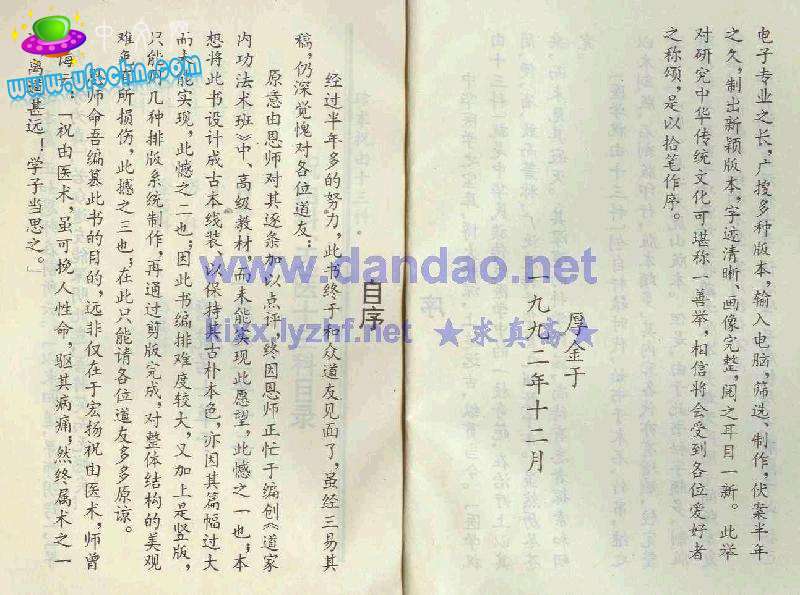 电子专业之长，广搜多种版本，输入电脑，筛选、制作，伏案半年
之久，制出新颖版本，字迹清晰、画像完整，阅之耳目一新。此举
对研究中华传统文化可堪称一善举，相信将会受到各位爱好者
之称颂，是以拾笔作序。
厚金于
一九九二年十二月
自序
经过半年多的努力，此书终于和众道友见面了，虽经三易其
稿，仍深觉愧对各位道友：
原意由恩师对其逐条加以点评，终因恩师正忙于编创《道家
内功法术班》中、高级教材，而未能实现此愿望，此憾之一也；本
想将此书设计成古本线装，以保持其古朴本色，亦因其篇幅过大
而未能实现，此憾之二也；因此书编排难度较大，又加上是竖版，
只能用几种排版系统制作，再通过剪版完成，对整体结构的美观
难免有所损伤，此憾之三也；在此只能请各位道友多多原谅。
恩师命吾编纂此书的目的，远非仅在于宏扬祝由医术，师曾
诲云：「祝由医术，虽可挽人性命，驱其病痛；然终属术之一
离道甚远！学子当思之。」
www.dandao.net
kixx.lyznf.net ★求真斋★
www.ufochn.com